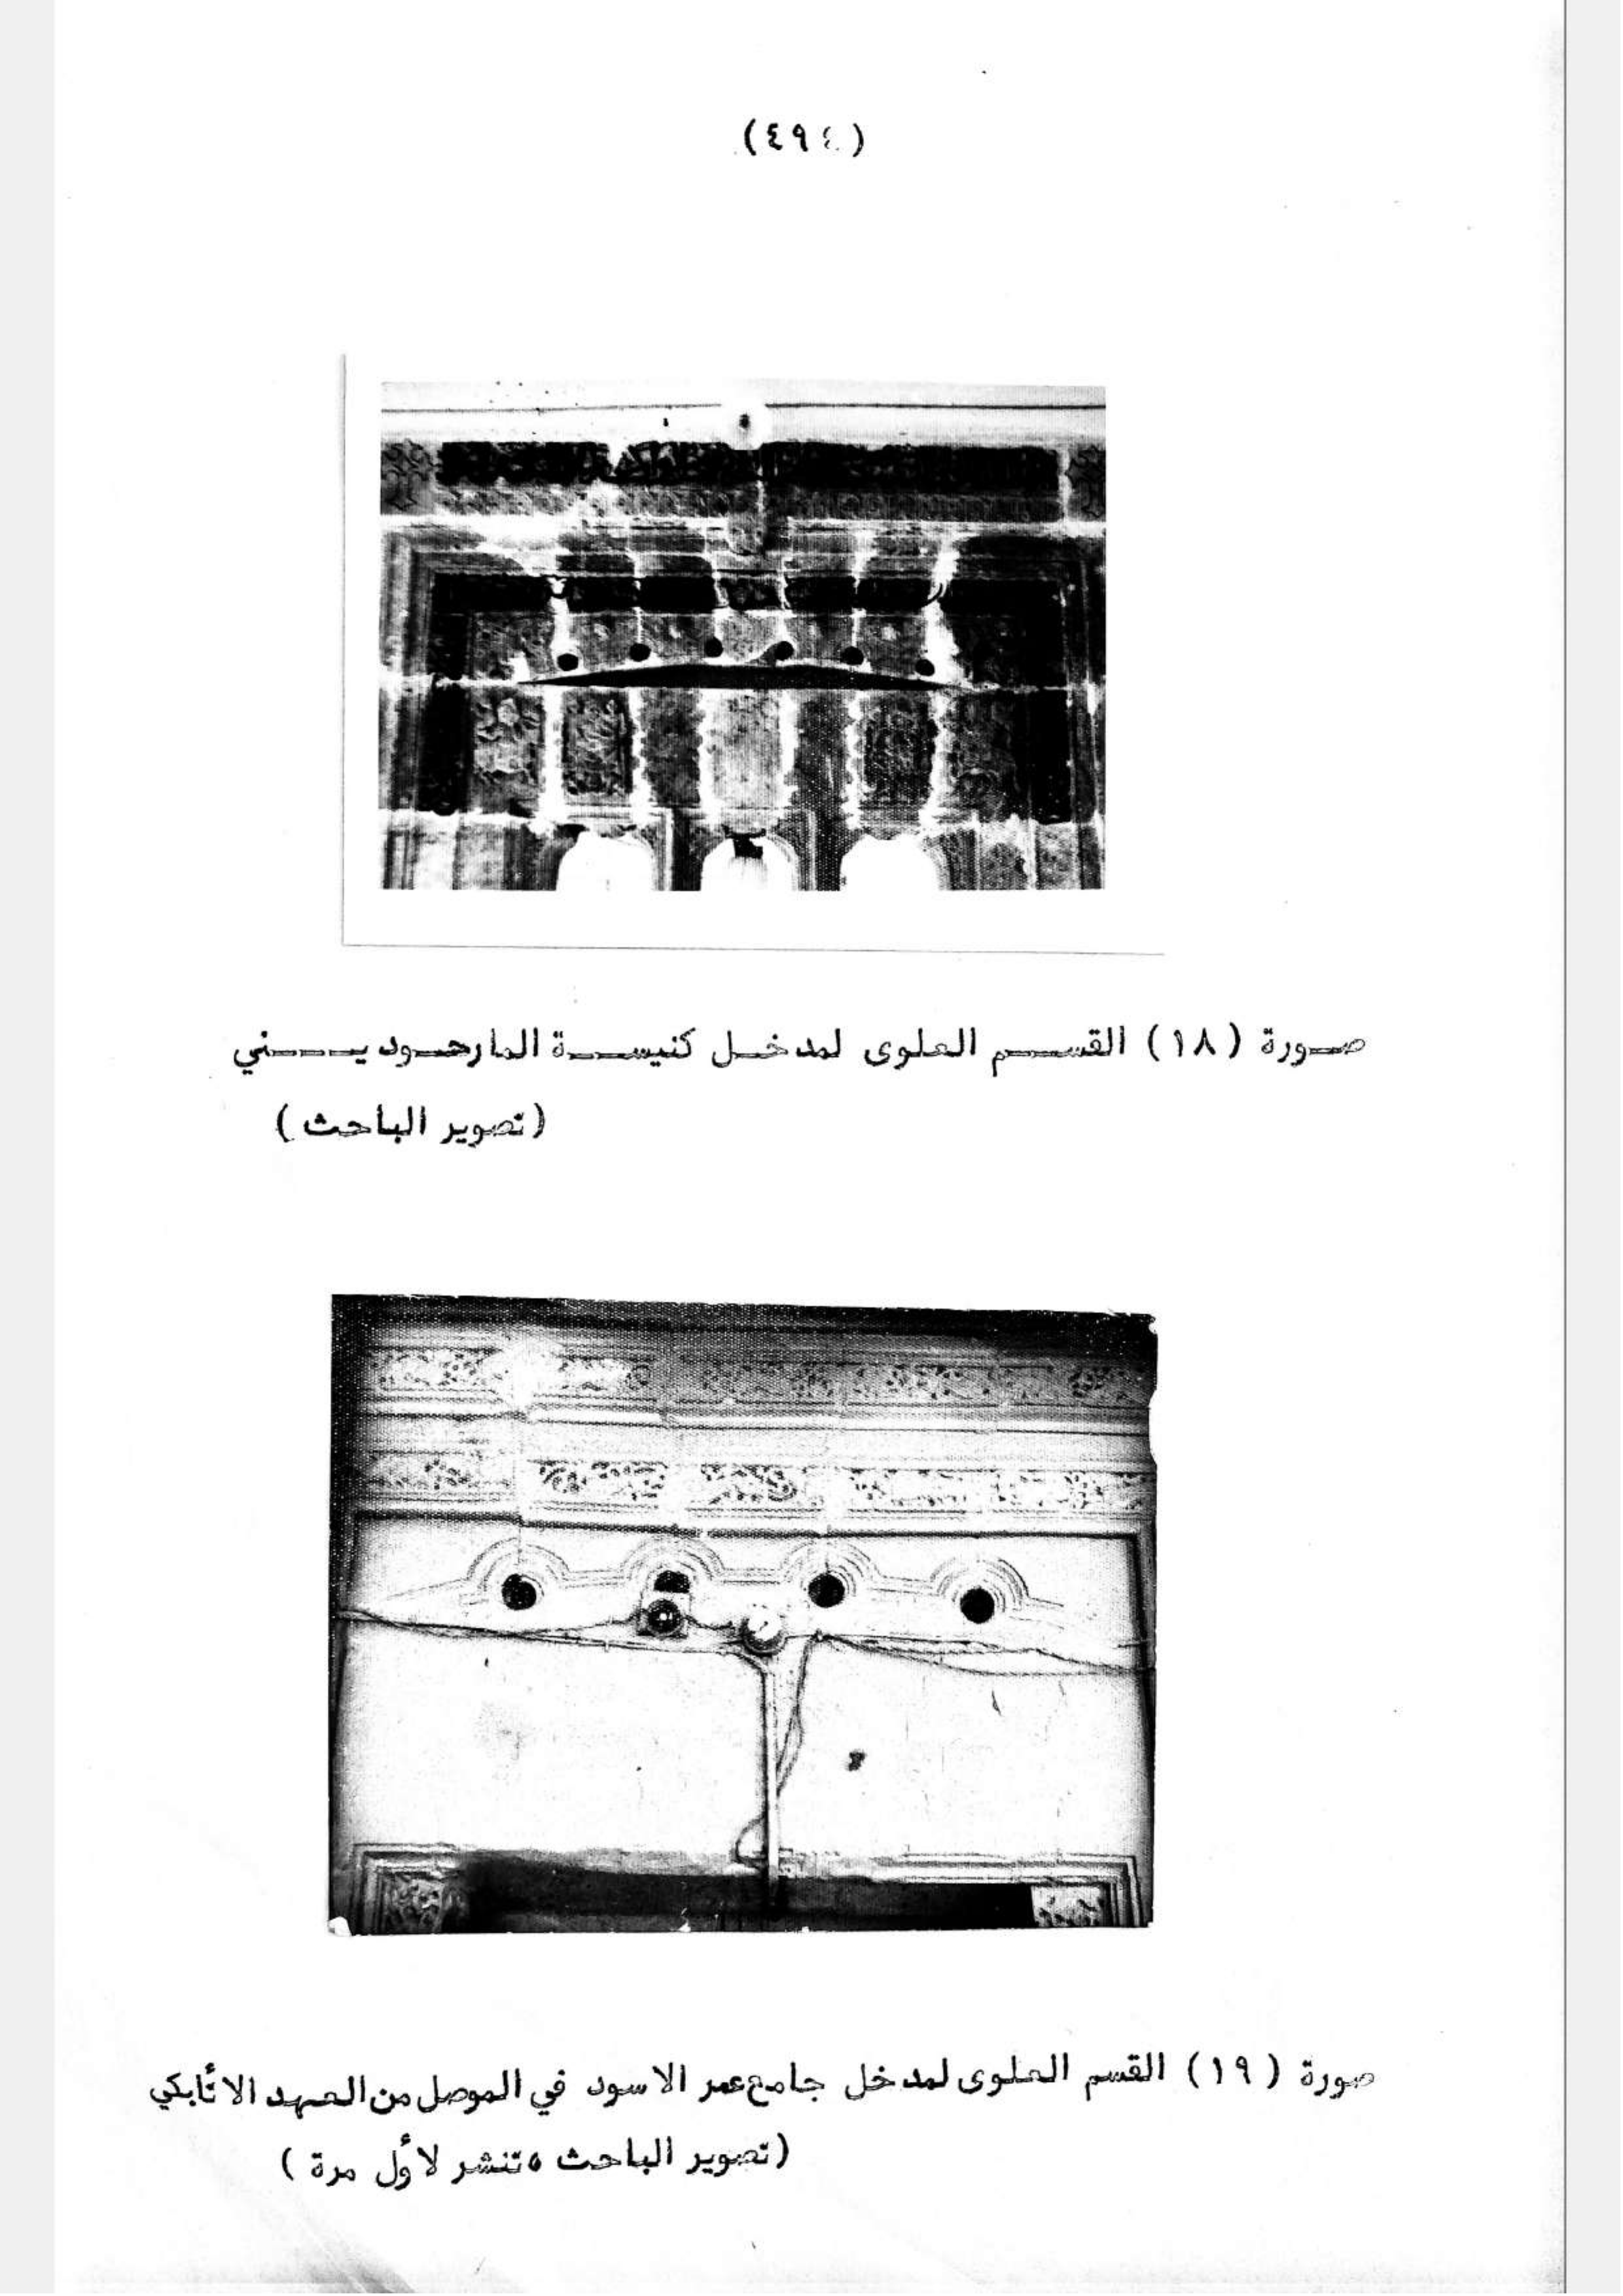 (٤٩٤)
صورة (١٨) القسم العلوى لمدخل كنيسة المارحوديني
(تصوير الباحث)
صورة (١٩) القسم العلوى لمدخل جامع عمر الاسود في الموصل من العهد الاتأبكي
(تصوير الباحث، تنشر لأول مرة)